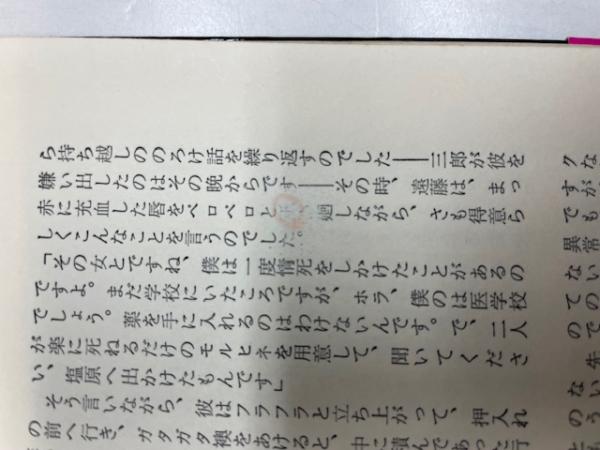 ら持ち越しののろけ話を繰り返すのでした――三郎が彼を
嫌い出したのはその晩からです――その時、遠藤は、まっ
赤に充血した唇をペロペロと廻しながら、さも得意ら
しくこんなことを言うのでした。
「その女とですね、僕は一度情死をしかけたことがあるの
ですよ。まだ学校にいたころですが、ホラ、僕のは医学校
でしょう。薬を手に入れるのはわけないんです。で、二人
が楽に死ねるだけのモルヒネを用意して、聞いてくださ
い、塩原へ出かけたもんです」
そう言いながら、彼はフラフラと立ち上がって、押入れ
の前へ行き、ガタガタ襖をあけると、中に積んであった行